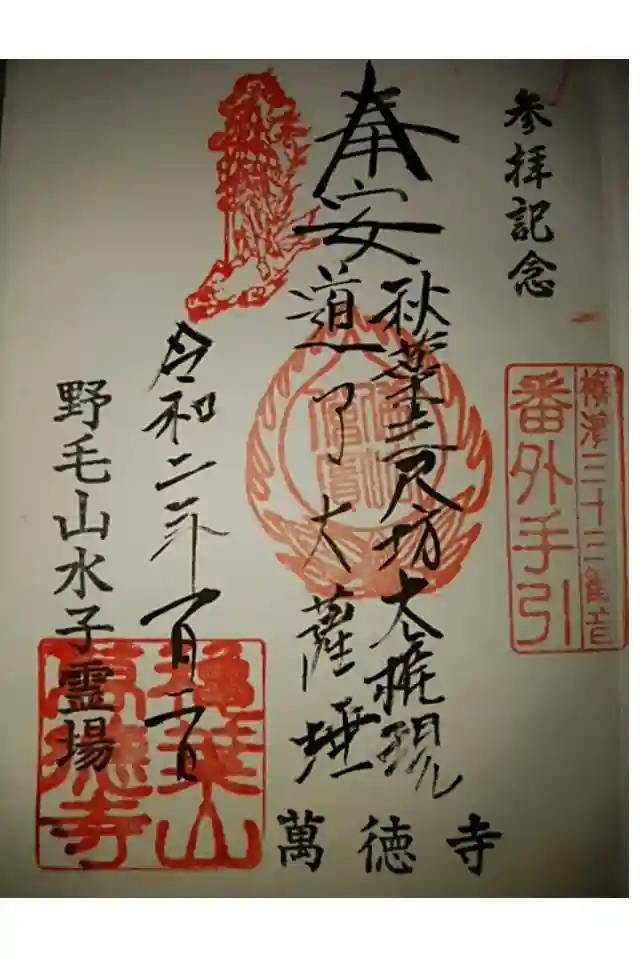 参拝記念
横浜三十三観音
番外手引
奉安
秋葉三尺坊大権現
道了大薩埵
令和二年一月二日
野毛山水子霊場
萬徳寺
秋葉山
萬徳寺